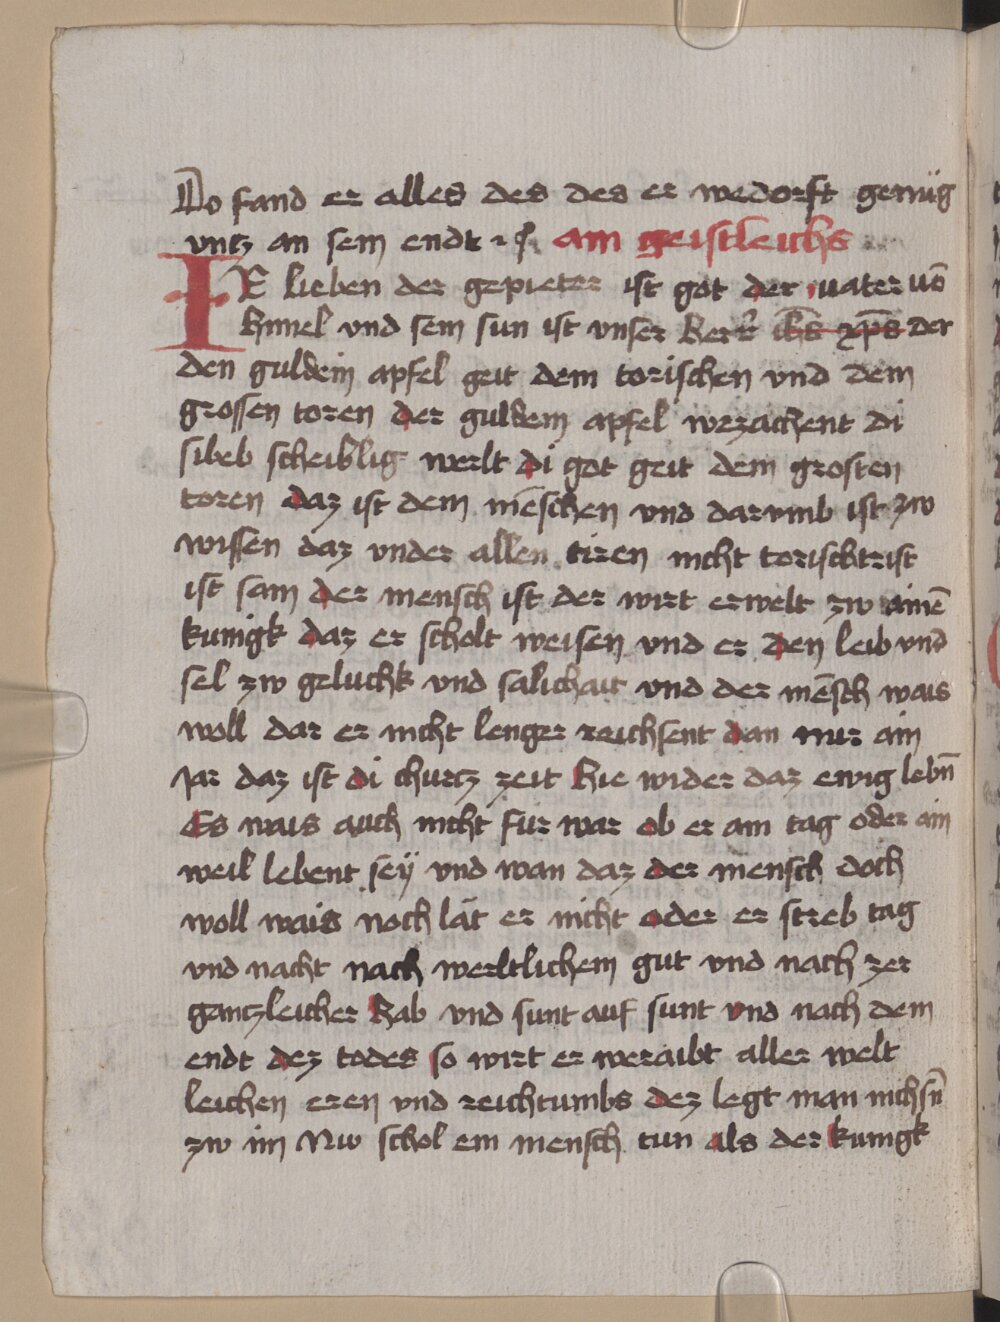 Do fand er alles des des er wedorft genüg
vntz an sein endt ⁊ ꝛc. ain geistleichs
IR lieben der gepieter ist got der vater vō
himel vnd sein sun ist vnser herr̄ ih̄s xp̄s der
den guldein apfel geit dem torischen vnd dem
grossen toren der guldein apfel wezaichent di
sibeb scheiblig werlt di got geit dem grosten
toren daz ist dem mēschen vnd darumb ist zw
wissen daz vnder allen tiren nicht torischtrist
ist sam der mensch ist der wirt erwelt zw ainē
kunigk daz er scholt weisen vnd er den leib vnd
sel zw geluchk vnd salichait vnd der mēsch wais
woll dar er nicht lenger reichsent dan nur ain
Jar daz ist di churtz zeit hie wider daz ewig lebn̄
Es wais auch nicht fur war ob er ain tag oder ain
weil lebent seÿ vnd wan daz der mensch doch
woll wais noch lät er nicht oder er streb tag
vnd nacht nach werltlichem gut vnd nach zer
gantzleicher hab vnd sunt auf sunt vnd nach dem
endt dez todes so wirt er weraibt aller welt
leichen eren vnd reichtumbs dez legt man nichsn̄
zw im Nw schol ein mensch tun als der kunigk